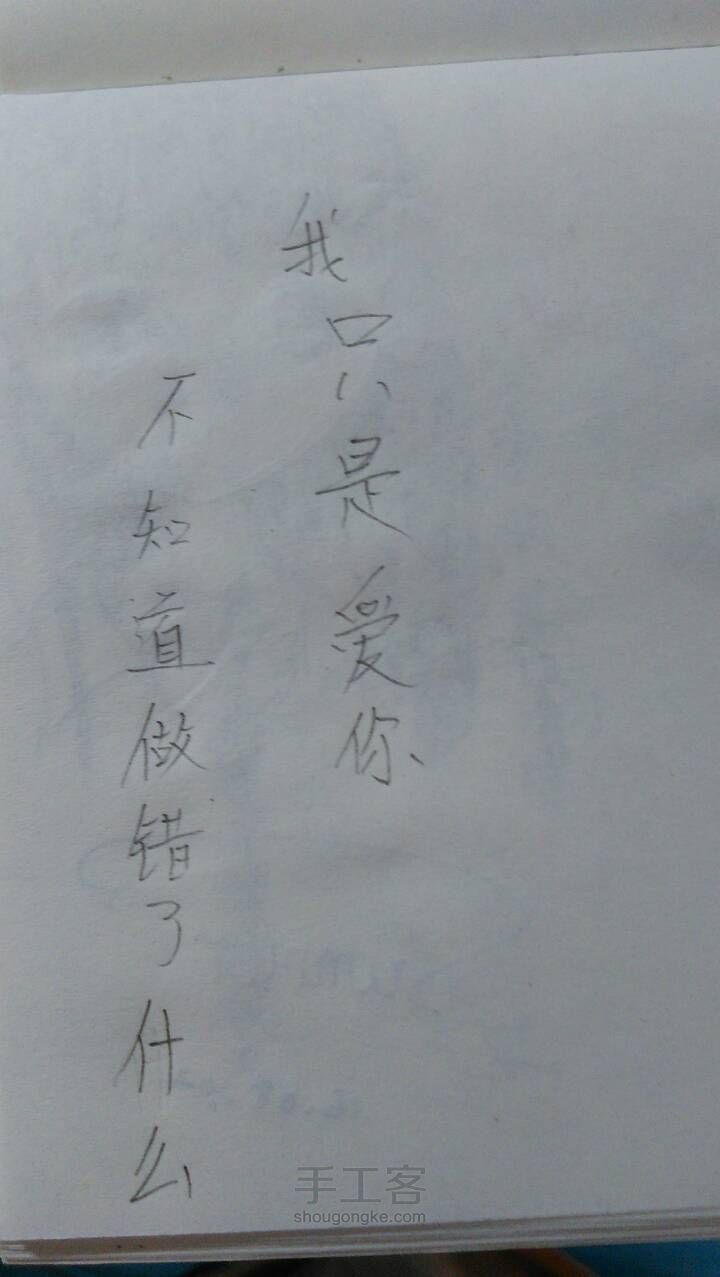 我只是爱你
不知道做错了什么
手工客
shougongke.com